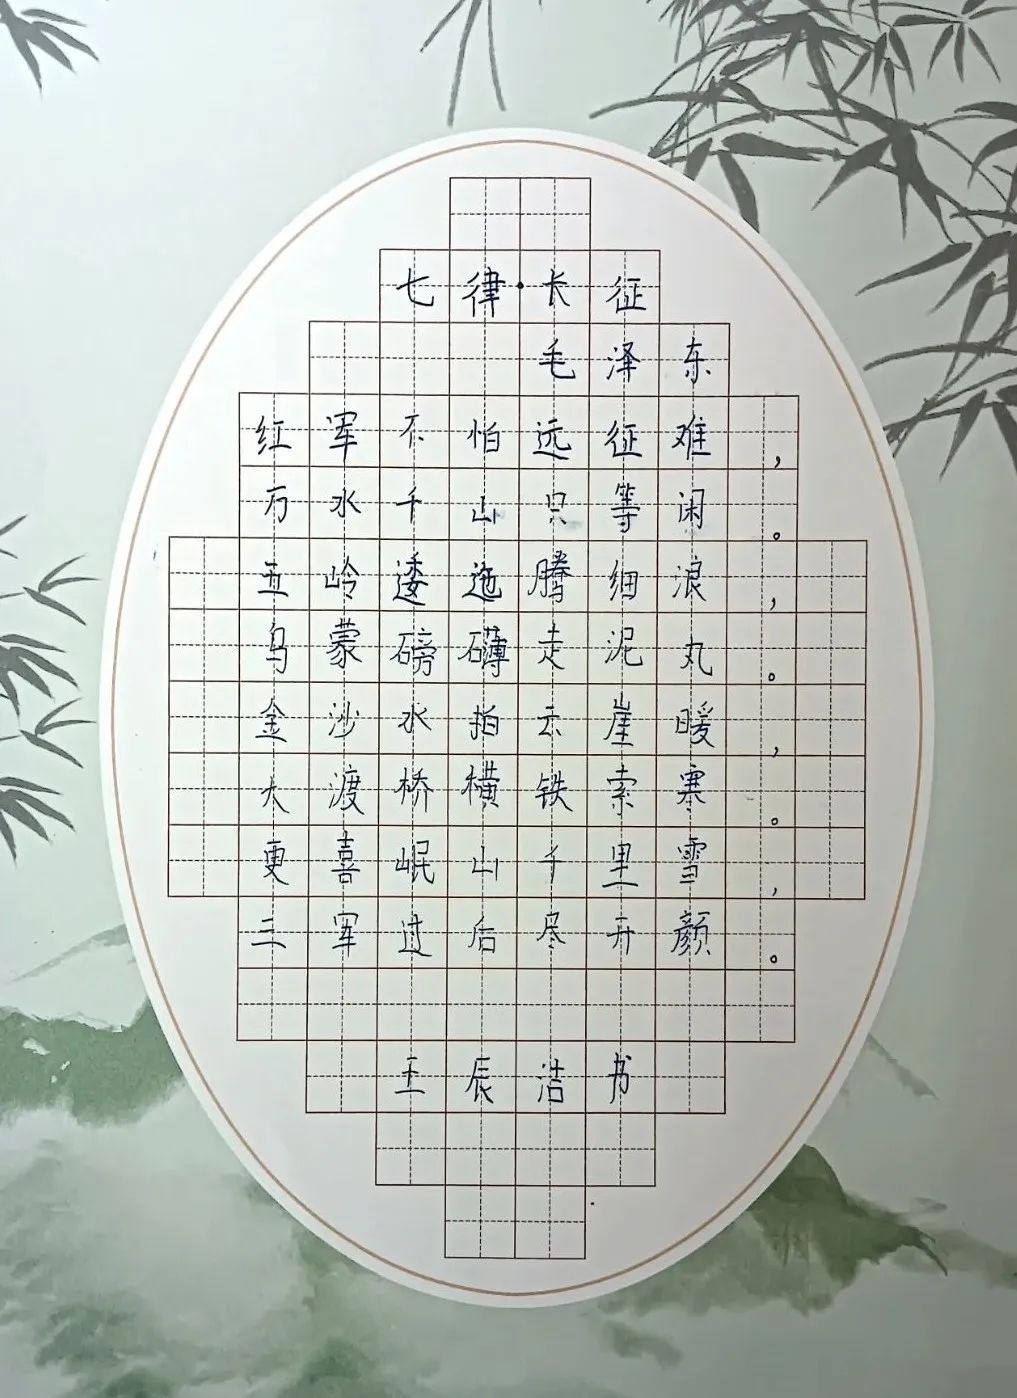 七律·长征
毛泽东
红军不怕远征难，
万水千山只等闲。
五岭逶迤腾细浪，
乌蒙磅礴走泥丸。
金沙水拍云崖暖，
大渡桥横铁索寒。
更喜岷山千里雪，
三军过后尽开颜。
王辰浩书